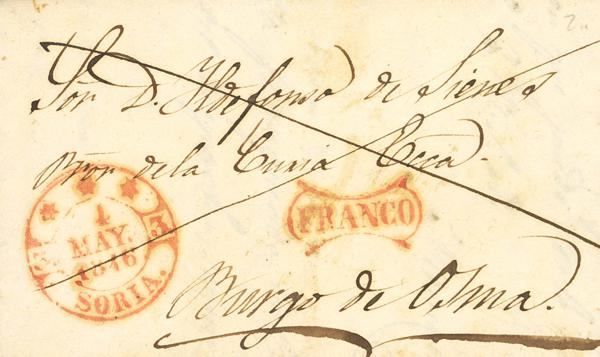 Sor. D. Ildefonso de Sienes
Pror. de la Curia Ecca.
4
MAY.
1846
3 3
SORIA.
FRANCO
Burgo de Osma.